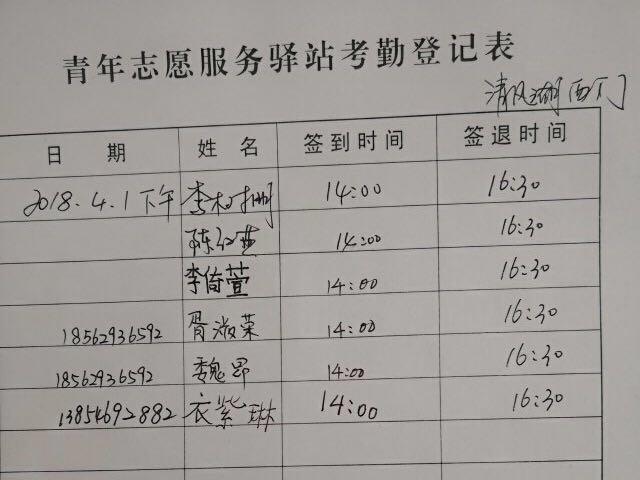 青年志愿服务驿站考勤登记表
清风湖西门
日 期 姓 名 签到时间 签退时间
2018.4.1下午 李 14:00 16:30
陈红燕 14:00 16:30
李倚萱 14:00 16:30
18562936592 胥淑荣 14:00 16:30
18562936592 魏昂 14:00 16:30
13854692882 衣紫琳 14:00 16:30